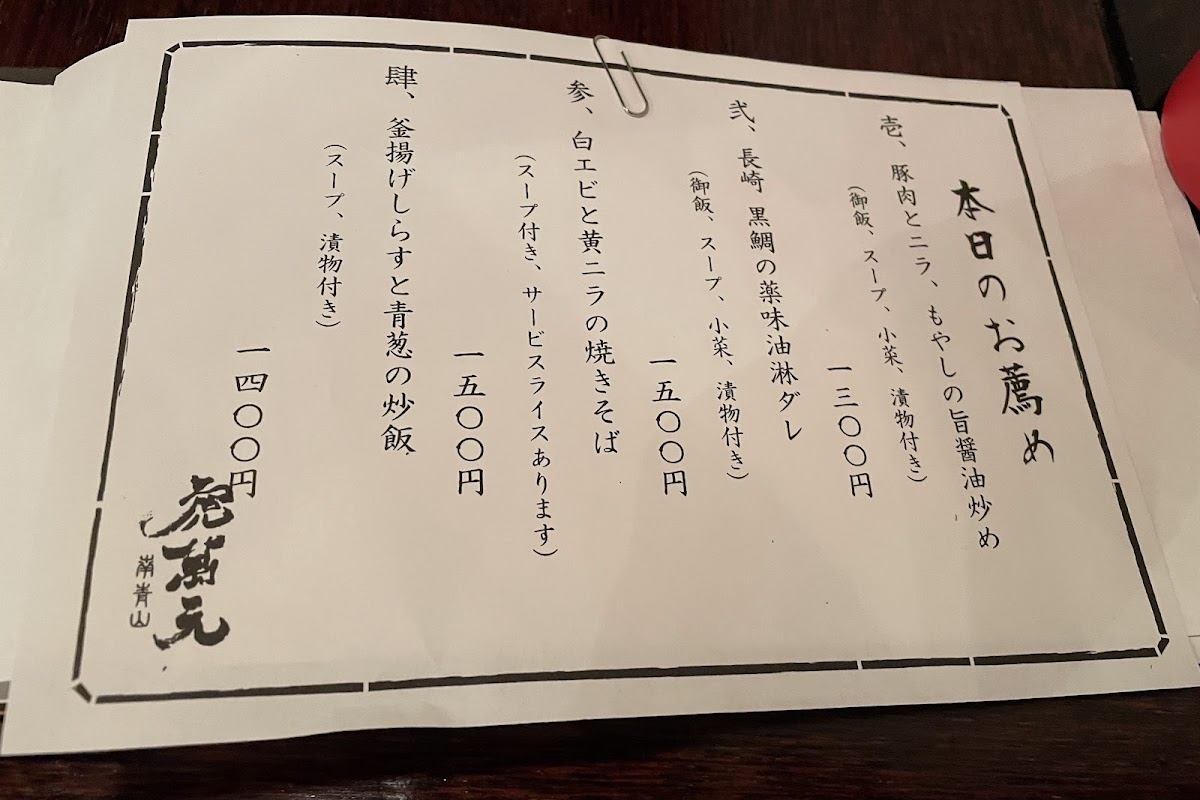 本日のお薦め
壱、豚肉とニラ、もやしの旨醤油炒め
(御飯、スープ、小菜、漬物付き)
一三〇〇円
弐、長崎 黒鯛の薬味油淋ダレ
(御飯、スープ、小菜、漬物付き)
一五〇〇円
参、白エビと黄ニラの焼きそば
(スープ付き、サービスライスあります)
一五〇〇円
肆、釜揚げしらすと青葱の炒飯
(スープ、漬物付き)
一四〇〇円
虎萬元
南青山